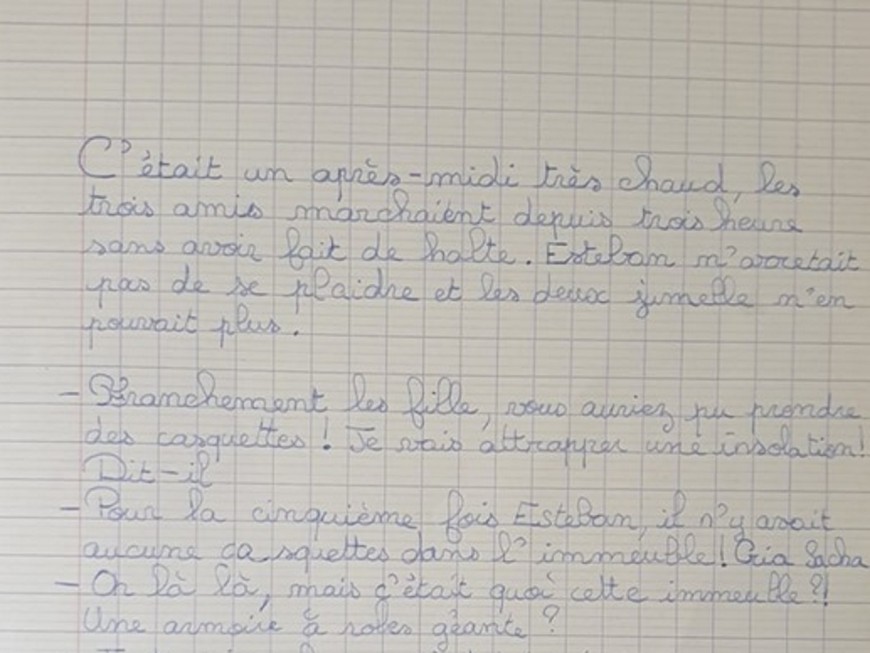 C'était un après-midi très chaud, les
trois amis marchaient depuis trois heure
sans avoir fait de halte. Esteban n'arretait
pas de se plaidre et les deux jumelle n'en
pouvait plus.
- Franchement les fille, vous auriez pu prendre
des casquettes ! Je vais attrapper une insolation!
Dit-il
- Pour la cinquième fois Esteban, il n'y avait
aucune casquettes dans l'immeuble! Cria Sacha
- Oh là là, mais c'était quoi cette immeuble ?!
Une armoire à robes géante ?